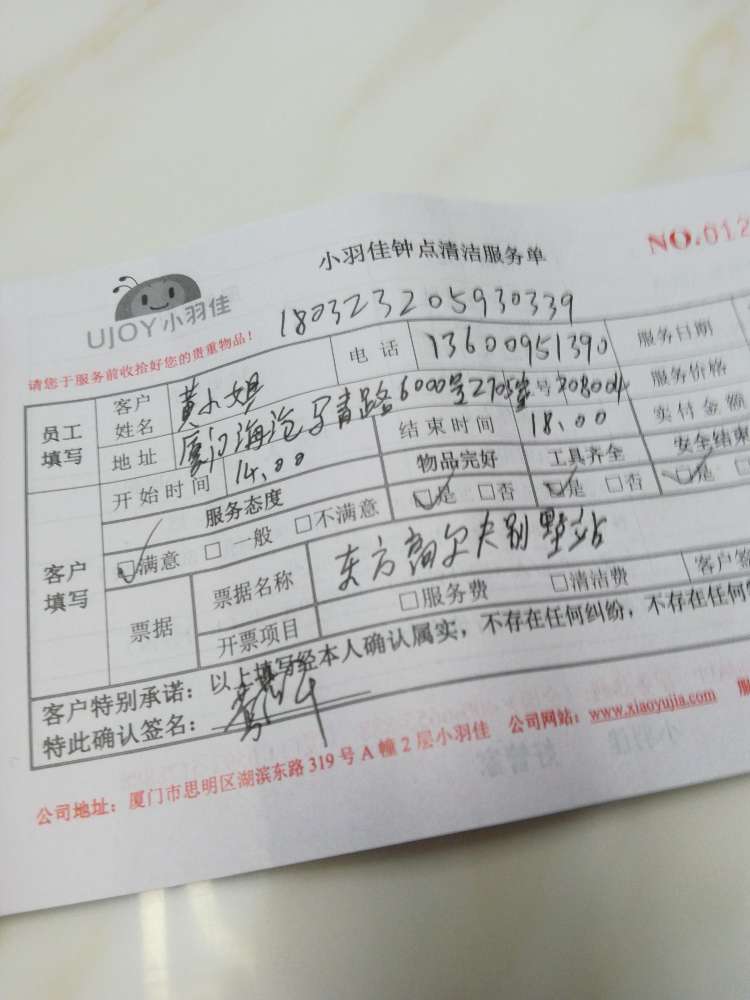 小羽佳钟点清洁服务单
NO.012
UJOY小羽佳
180323205930339
请您于服务前收拾好您的贵重物品!
员工填写 客户姓名 黄小姐 电话 13600951390 服务日期
地址 厦门海沧马青路6000号2705 号708004 服务价格
开始时间 14.00 结束时间 18.00 实付金额
客户填写 服务态度 物品完好 工具齐全 安全结束
☑满意 □一般 □不满意 ☑是 □否 ☑是 □否 ☑是
票据 票据名称 东方高尔夫别墅站
开票项目 □服务费 □清洁费 客户
客户特别承诺:以上填写经本人确认属实,不存在任何纠纷,不存在任何
特此确认签名:
公司地址:厦门市思明区湖滨东路319号A幢2层小羽佳 公司网站:www.xiaoyujia.com